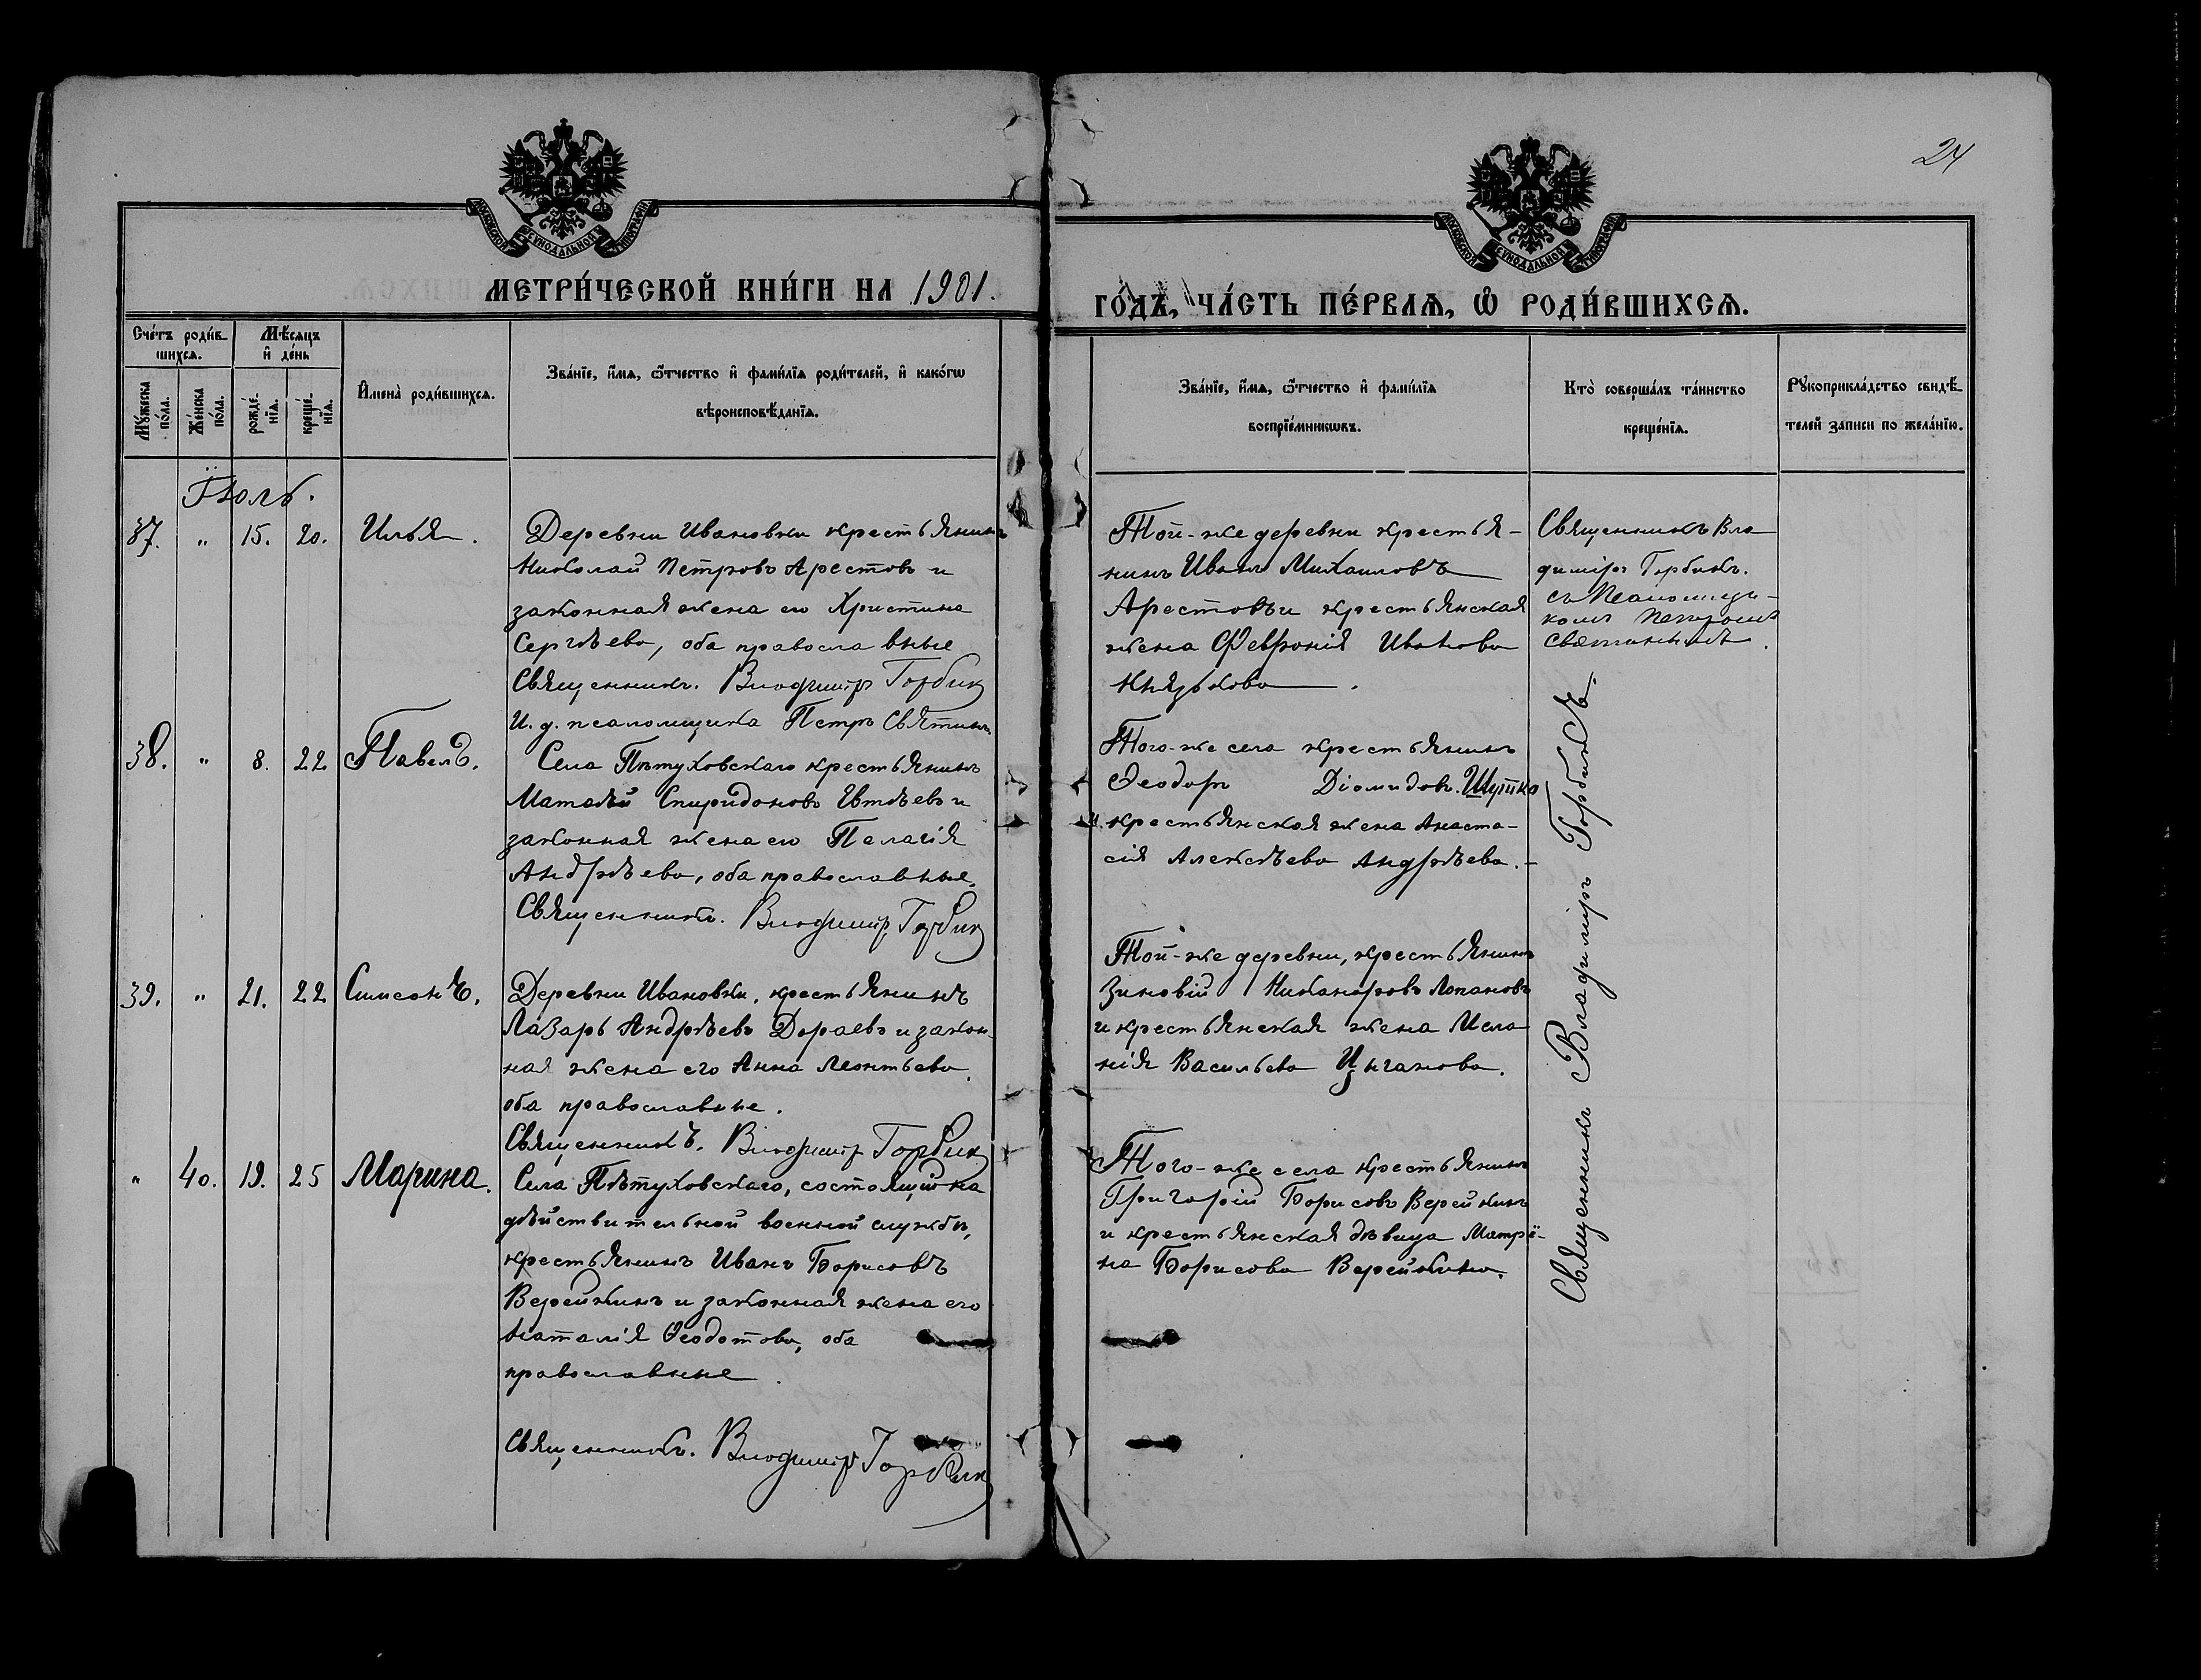 24
МОСКОВСКОЙ СУНОДАЛЬНОЙ ТИПОГРАФИИ
МОСКОВСКОЙ СУНОДАЛЬНОЙ ТИПОГРАФИИ
МЕТРИ́ЧЕСКОЙ КНИ́ГИ НА 1901.
ГО́ДЪ, ЧА́СТЬ ПЕ́РВАѦ, Ѿ РОДИ́ВШИХСѦ.
Сче́тъ роди́в-
шихсѧ.
Мѣ́сѧцъ
и҆ де́нь
Мꙋ́жеска
по́ла.
Же́нска
по́ла.
рожде́-
нїѧ.
креще́-
нїѧ.
И҆мена̀ роди́вшихсѧ.
Зва́нїе, и҆́мѧ, ѻ҆́тчество и҆ фамѝлїѧ роди́телей, и҆ како́гѡ
вѣроисповѣ́данїѧ.
Зва́нїе, и҆́мѧ, ѻ҆́тчество и҆ фамѝлїѧ
воспрїе́мникѡвъ.
Кто̀ соверша́лъ та́инство
креще́нїѧ.
Рꙋкоприкла́дство свидѣ́-
телей записи по жела́нїю.
Іюль.
37. " 15. 20. Илья.
Деревни Ивановки крестьянинъ
Николай Петровъ Арестовъ и
законная жена его Христина
Сергѣева, оба православные
Священникъ. Владиміръ Горбик
И. д. псаломщика Петръ Святинъ
Той-же деревни крестья-
нинъ Иванъ Михаиловъ
Арестовъ и крестьянская
жена Феѵронія Иванова
Князькова.
Священникъ Вла
диміръ Горбикъ.
съ Псаломщи-
комъ Петромъ
Святинымъ.
38. " 8. 22 Павелъ.
Села Пѣтуховскаго крестьянинъ
Матѳѣй Спиридоновъ Евтѣевъ и
законная жена его Пелагія
Андрѣева, оба православные.
Священникъ. Владиміръ Горбик
Того-же села крестьянинъ
Ѳеодоръ Діомидовъ Шутко
и крестьянская жена Анаста-
сія Алексѣева Андрѣева.-
39. " 21. 22 Симеонъ.
Деревни Ивановки, крестьянинъ
Лазарь Андрѣевъ Дораевъ и закон-
ная жена его Анна Леонтьева,
оба православные.
Священникъ. Владиміръ Горбик
Той-же деревни, крестьянинъ
Зиновій Никаноровъ Лопановъ
и крестьянская жена Мела-
нія Васильева Цыганова.
" 40. 19. 25 Марина.
Села Пѣтуховскаго, состоящій на
дѣйствительной военной службѣ,
крестьянинъ Иванъ Борисовъ
Верейкинъ и законная жена его
Наталія Ѳеодотова, оба
православные.
Священникъ. Владиміръ Горбик
Того-же села крестьянинъ
Григорій Борисовъ Верейкинъ
и крестьянская дѣвица Матрё-
на Борисова Верейкина.
Священникъ Владиміръ Горбикъ.